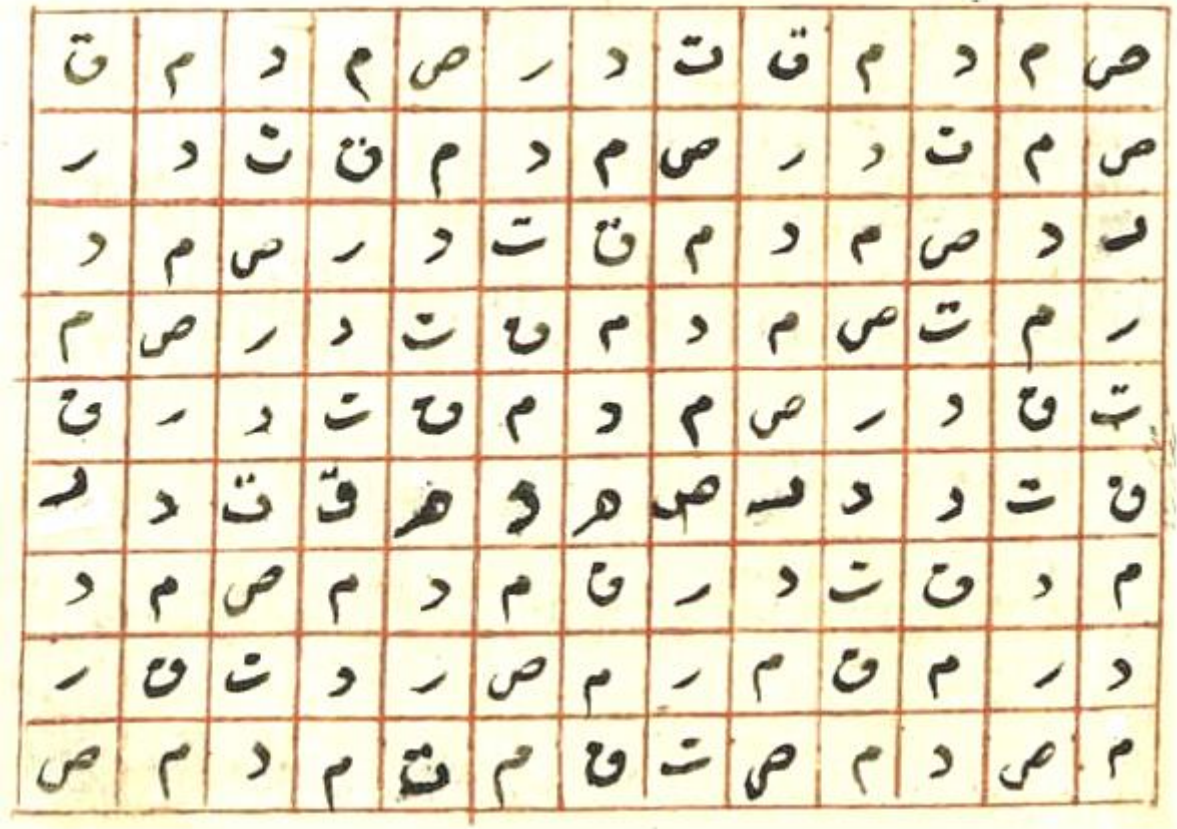 ص م د م ق ت د ر ص م د م ق
ص م ت د ر ص م د م ق ت د ر
د د ص م د م ق ت د ر ص م د
ر م ت ص م د م ق ت د ر ص م
ت ق د ر ص م د م ق ت د ر ق
ق ت د د ر ص ه د ه ق ت د ر
م د ق ت د ر ق م د م ص م د
د ر م ق م ر م ص ر د ت ق ر
م ص د م ص ت ق م ت م د م ص